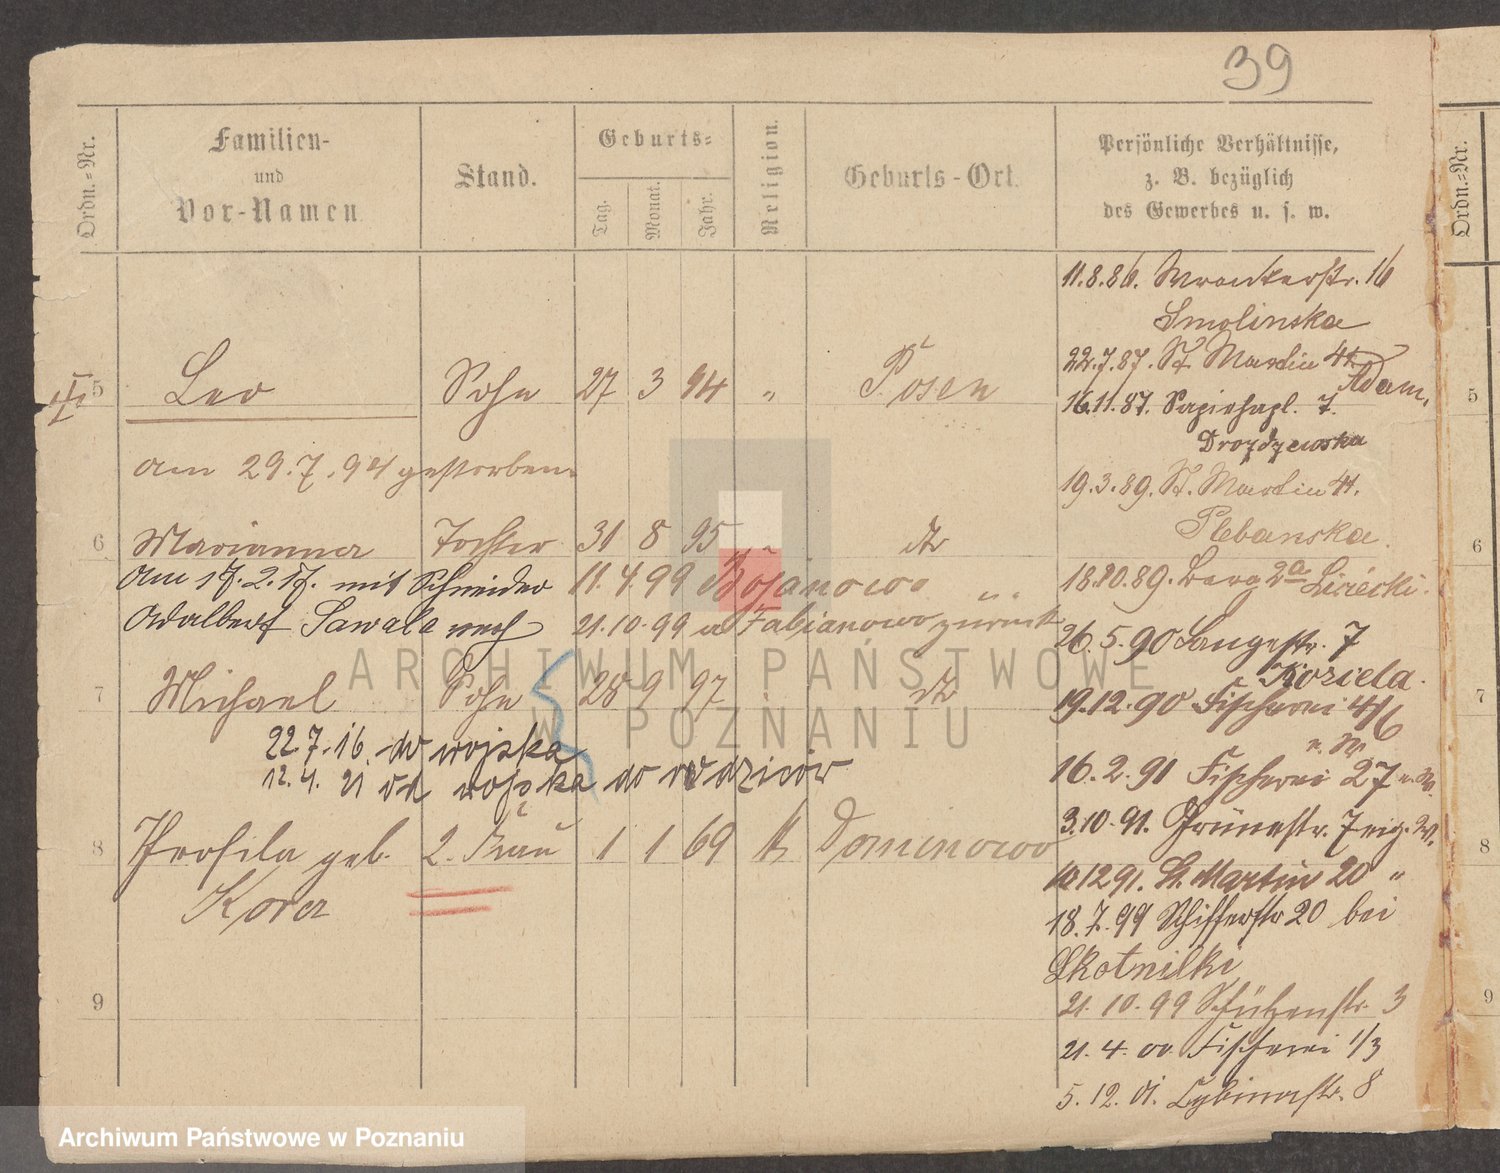 39
Ordn.-Nr.
Familien-
und
Vor-Namen
Stand.
Geburts-
Tag.
Monat.
Jahr.
Religion.
Geburts-Ort.
Persönliche Verhältnisse,
z. B. bezüglich
des Gewerbes u. s. w.
Ordn.-Nr.
11.8.86. Wronkerstr. 16
Smolinska
22.7.87. St. Martin 41.
Adam.
5 Leo Sohn 27 3 94 " Posen
16.11.87. Sapiehapl. 7.
Drozdzewska
am 29.7.94 gestorben.
19.3.89. St. Martin 41.
Plebanska.
6 Marianna Tochter 31 8 95 " dto
am 17.2.17. mit Schneider 11.4.99 Bojanowo
18.10.89. Berg 2a Lisiecki.
Adalbert Sawala 21.10.99 a Fabianowo zurück
26.5.90 Langestr. 7
Koziela.
7 Michael Sohn 28 9 97 dto
19.12.90 Fischerei 4/6
n. W.
22.7.16. do wojska
16.2.91 Fischerei 27 n. W.
12.4.21 od wojska do rodziców
3.10.91. Grünestr. 7 eig. W.
8 Profila geb. 2. Frau 1 1 69 k Dominowo
Kora
10.12 91. St. Martin 20 "
18.7.99 Schifferstr 20 bei
Skotnilki
9
21.10.99 Schützenstr. 3
21.4.00 Fischerei 1/3
5.12.01. Cybinastr. 8
5
6
7
8
9
ARCHIWUM PAŃSTWOWE
W POZNANIU
Archiwum Państwowe w Poznaniu